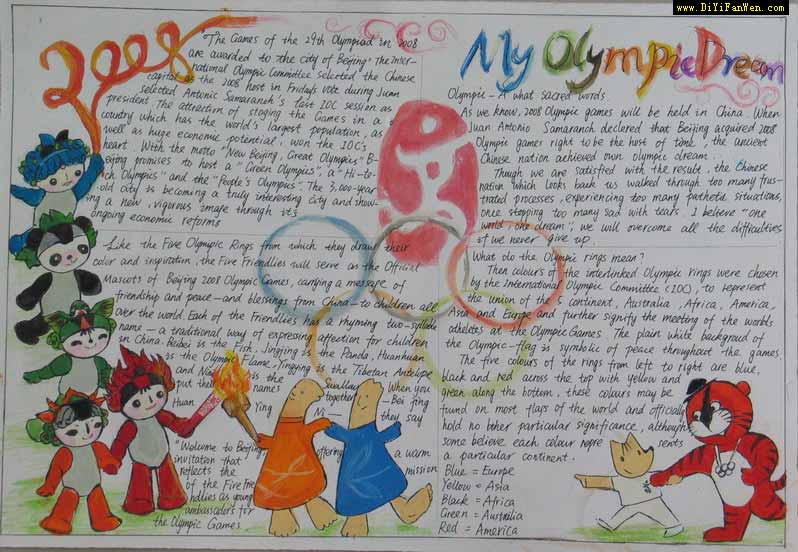 www.DiYiFanWen.com
2008
The Games of the 29th Olympiad in 2008
are awarded to the city of Beijing. The Inter-
national Olympic Committee selected the Chinese
capital as the 2008 host in Friday's vote during Juan
president Antonic Samaranch's last IOC session as
The attraction of staging the Games in a
country which has the world's largest population, as
well as huge economic potential, won the IOC's
heart. With the motto "New Beijing, Great Olympics" B-
eijing promises to host a "Green Olympics", a "Hi-te-
ch Olympics" and the "People's Olympics". The 3,000-year
old city is becoming a truly interesting city and show-
ing a new, vigorous image through its
ongoing economic reforms
Like the Five Olympic Rings from which they draw their
color and inspiration, the Five Friendlies will serve as the Official
Mascots of Beijing 2008 Olympic Games, carrying a message of
friendship and peace—and blessings from China—to children all
over the world. Each of the Friendlies has a rhyming two-syllable
name—a traditional way of expressing affection for children
in China. Beibei is the Fish, Jingjing is the Panda, Huanhuan
is the Olympic Flame, Yingying is the Tibetan Antelope
and Nini is the Swallow. When you
put their names together Bei Jing
Huan Ying Ni— they say
"Welcome to Beijing" offering a warm
invitation that mission
reflects the
of the Five Frie
ndlies as young
ambassadors for
the Olympic Games
My Olympic Dream
Olympic—A what sacred words.
As we know, 2008 Olympic games will be held in China. When
Juan Antonio Samaranch declared that Beijing acquired 2008
Olympic games right to be the host of time, the ancient
Chinese nation achieved own olympic dream.
Though we are satisfied with the result, the Chinese
nation which looks back us walked through too many frus-
trated processes, experiencing too many pathetic situations,
once stopping too many sad with tears. I believe "one
world one dream", we will overcome all the difficulties
if we never give up.
What do the Olympic rings mean?
Then colours of the interlinked Olympic rings were chosen
by the International Olympic Committee (IOC), to represent
the union of the 5 continent, Australia, Africa, America,
Asia and Europe and further signify the meeting of the worlds
athelets at the Olympic Games. The plain white backgroud of
the Olympic-flag is symbolic of peace throughout the games.
The five colours of the rings from left to right are blue,
black and red across the top with yellow and
green along the bottom. these colours may be
fund on most flags of the world and officially
hold no other particular significance, although
some believe each colour repre sents
a particular continent.
Blue = Europe
Yellow = Asia
Black = Africa
Green = Australia
Red = America